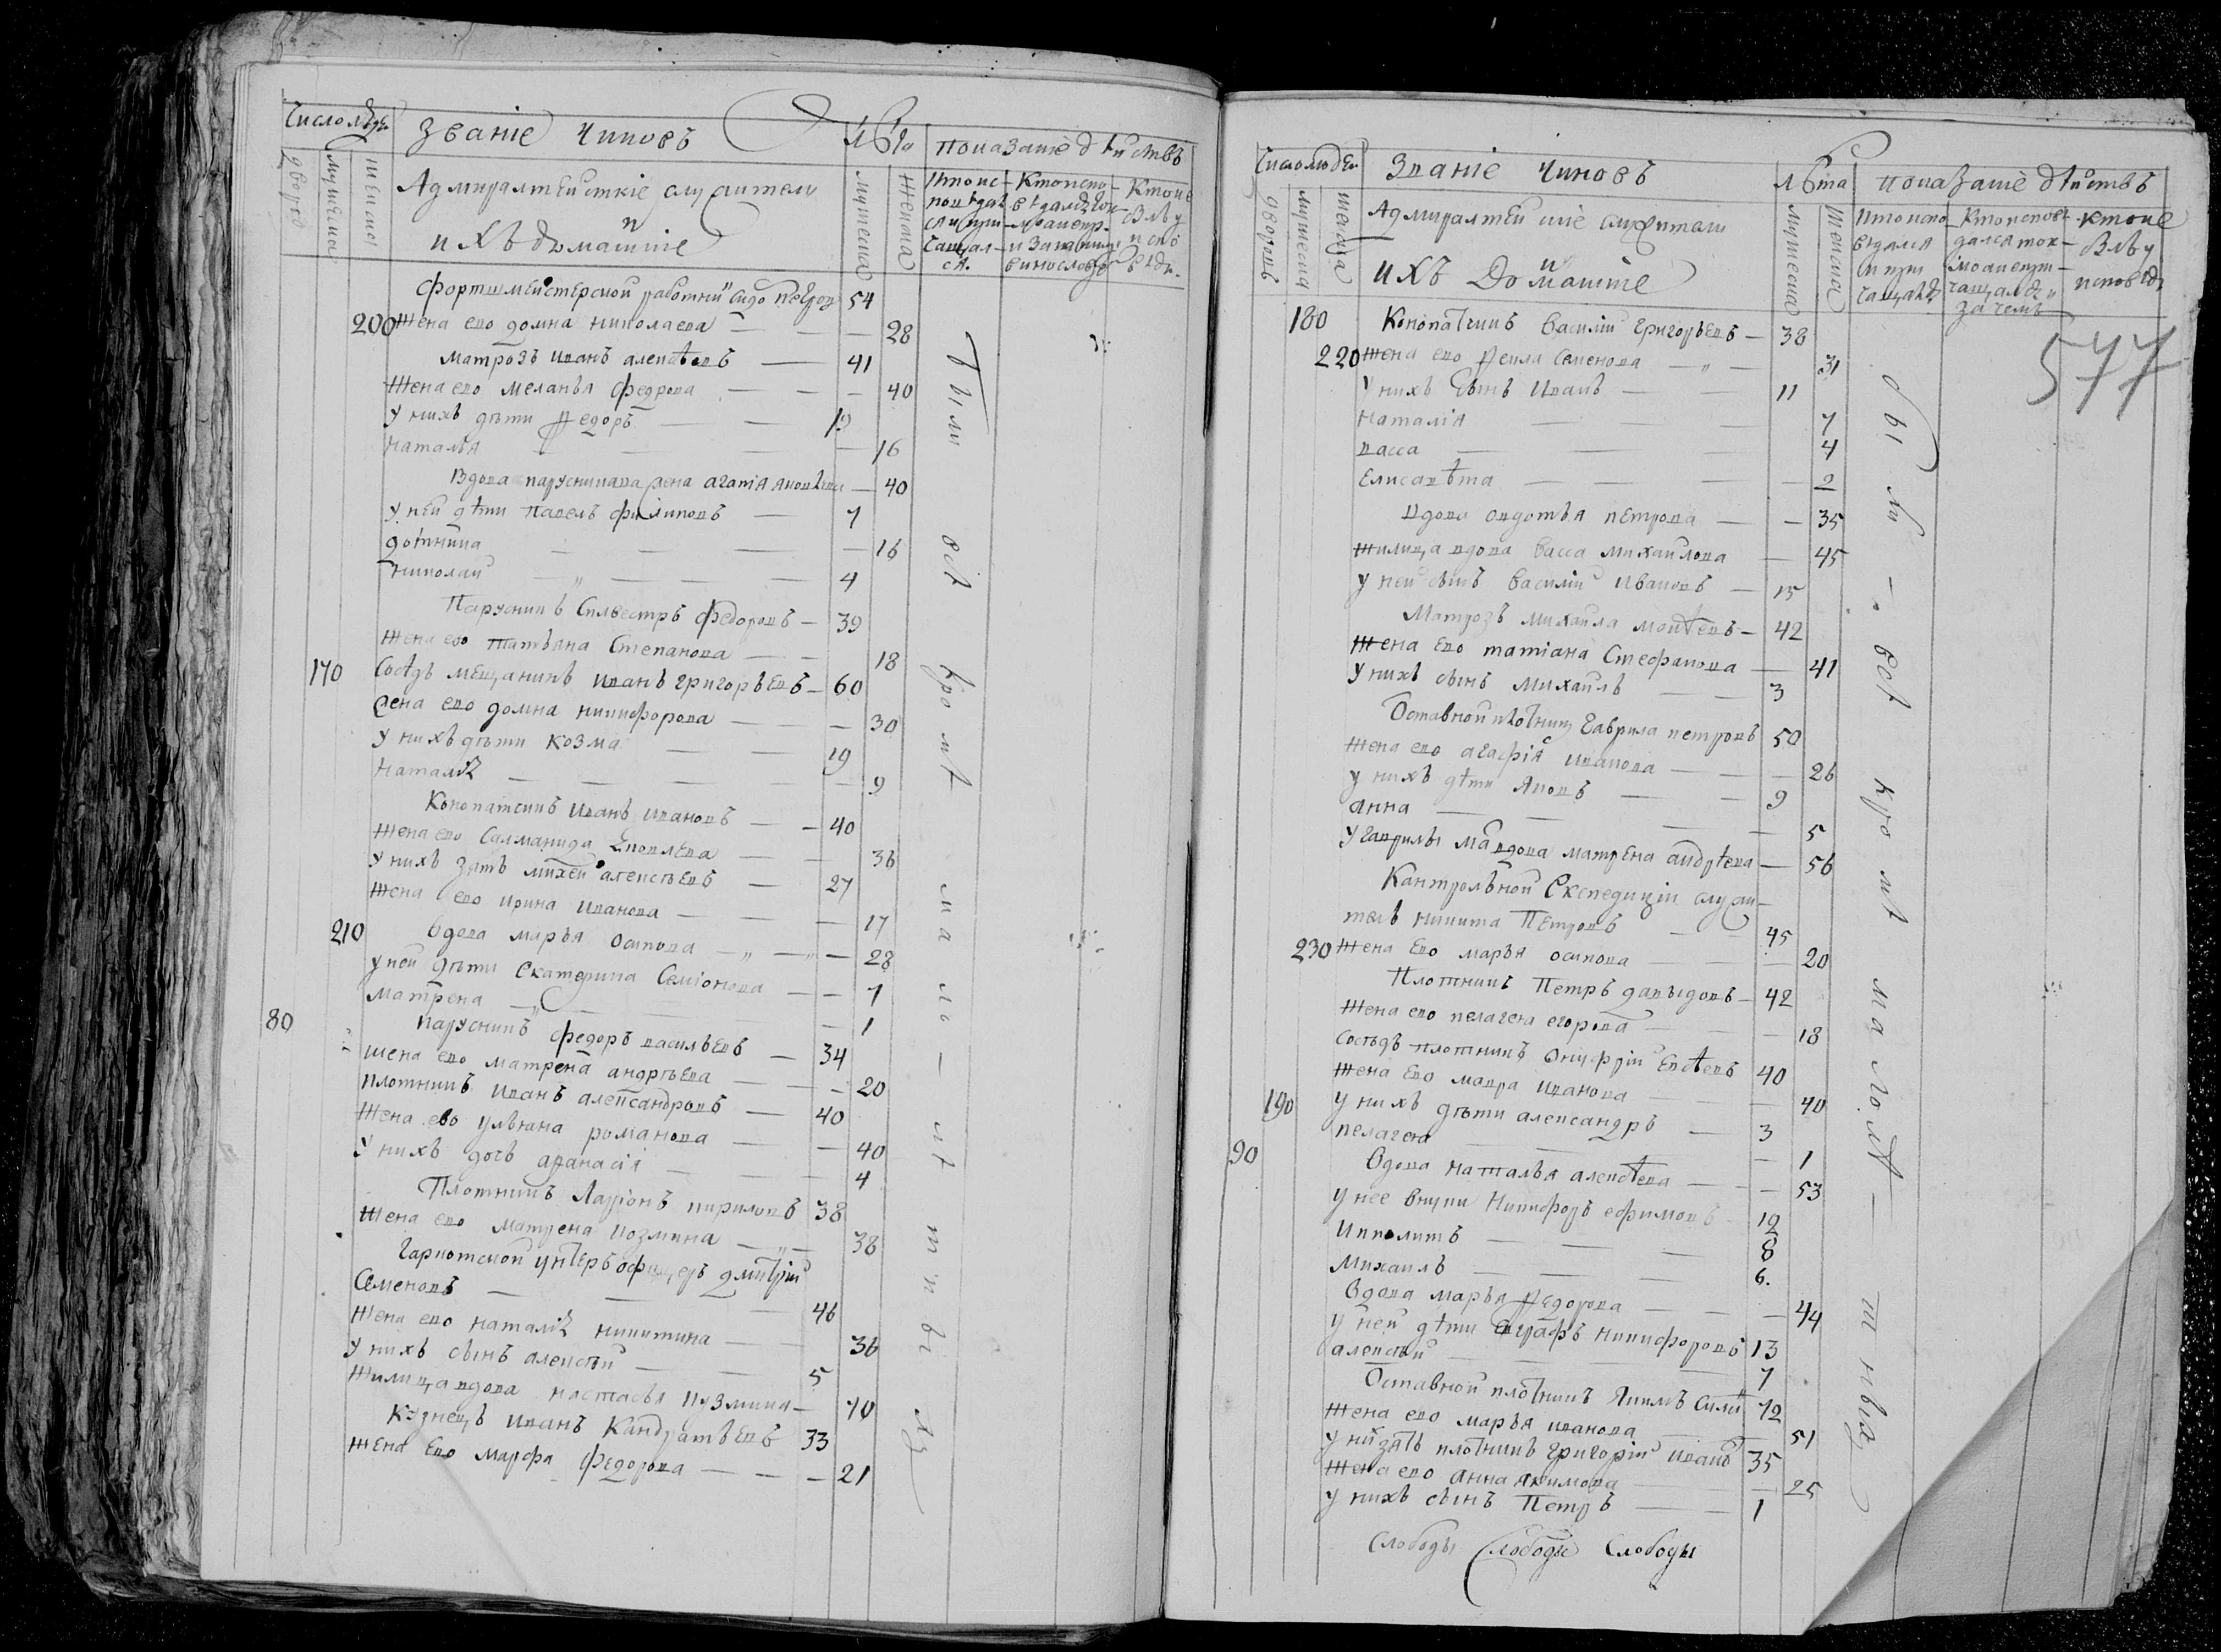 Число людей
Званіе Чиновъ
Лѣта
Показаніе дѣйствъ
дворов
мужеска
женска
Адмиралтейскіе служители
и
ихъ домашніе
мужеска
женска
Кто испо-
Кто испо-
Кто не
сидо Петров 54
200 Жена ево домна николаева — 28
Матрозъ иванъ алексѣевъ — 41
Жена ево меланья федрова — 40
У нихъ дѣти Ѳедоръ — 19
наталья — 16
Вдова парусника жена агапія яковлева — 40
у ней дѣти павелъ филиповъ — 7
— 16
николай — 4
Парусникъ Силвестръ федоровъ — 39
Жена ево татьяна Степанова — 18
170 Сосѣдъ мещанинъ иванъ григорьевъ — 60
жена ево домна никифорова — 30
У нихъ дѣти козма — 19
наталія — 9
Конопатчикъ иванъ ивановъ — 40
Жена ево Саламанида — 36
У нихъ зять михей алексѣевъ — 27
Жена ево ирина иванова — 17
210 вдова марья осипова — 28
у ней дѣти Екатерина Семіонова — 7
матрена — 1
80 парусникъ федоръ васильевъ — 34
жена ево матрена андрѣева — 20
плотникъ иванъ александровъ — 40
Жена ево ульяна романова — 40
У нихъ дочь афанасія — 4
Плотникъ Ларіонъ кириловъ 38
Жена ево матрена козмина — 38
унтеръ офицеръ дмитрій
Семеновъ — 46
Жена ево наталія никитина — 36
У нихъ сынъ алексѣй — 5
Жилица вдова настасья кузмина — 70
Кузнецъ иванъ Кандратьевъ 33
жена ево марфа федорова — 21
Были всѣ кромѣ малолѣтныхъ
Число людей
Званіе Чиновъ
лѣта
показаніе дѣйствъ
дворовъ
мужеска
женска
Адмиралтейскіе служители
и
ихъ Домашніе
мужеска
женска
Кто испо-
Кто испове-
Кто не
вѣдался
дался ток-
былъ у
и при-
мо а не при-
исповѣди
чащался
чащался и
за чемъ
577
180 Конопатчикъ Василій григорьевъ — 38
220 Жена ево Ѳекла Семенова — 31
У нихъ сынъ Иванъ — 11
наталія — 7
васса — 4
Елисавѣта — 2
вдова авдотья петрова — 35
Жилица вдова васса михайлова — 45
у ней сынъ василій ивановъ — 15
Матрозъ михаила моисѣевъ — 42
Жена ево татіана Стефанова — 41
У нихъ сынъ михаилъ — 3
Оставной плотникъ гаврила петровъ 50
Жена ево агафія иванова — 26
у нихъ дѣти Яковъ — 9
анна — 5
У гаврилы мать вдова матрена андрѣева — 56
Кантрольной Експедиціи служи-
тель никита Петровъ — 45
230 Жена ево марья осипова — 20
Плотникъ Петръ давыдовъ — 42
Жена ево пелагея егорова — 18
Сосѣдъ плотникъ онуфрій Евсѣевъ 40
Жена ево мавра иванова — 40
190 У нихъ дѣти александръ — 3
пелагея — 1
90 вдова наталья алексѣева — 53
у нее внуки никифоръ ефимовъ — 12
Ипполитъ — 8
Михаилъ — 6.
вдова марья Ѳедорова — 44
у ней дѣти евграфъ никифоровъ 13
алексѣй — 7
Оставной плотникъ Якимъ Сили 72
Жена ево марья иванова — 51
у них зять плотникъ григорій иванов 35
Жена ево анна якимова — 25
у нихъ сынъ Петръ — 1
были всѣ кромѣ малолѣтныхъ
Слободы Слободы Слободы